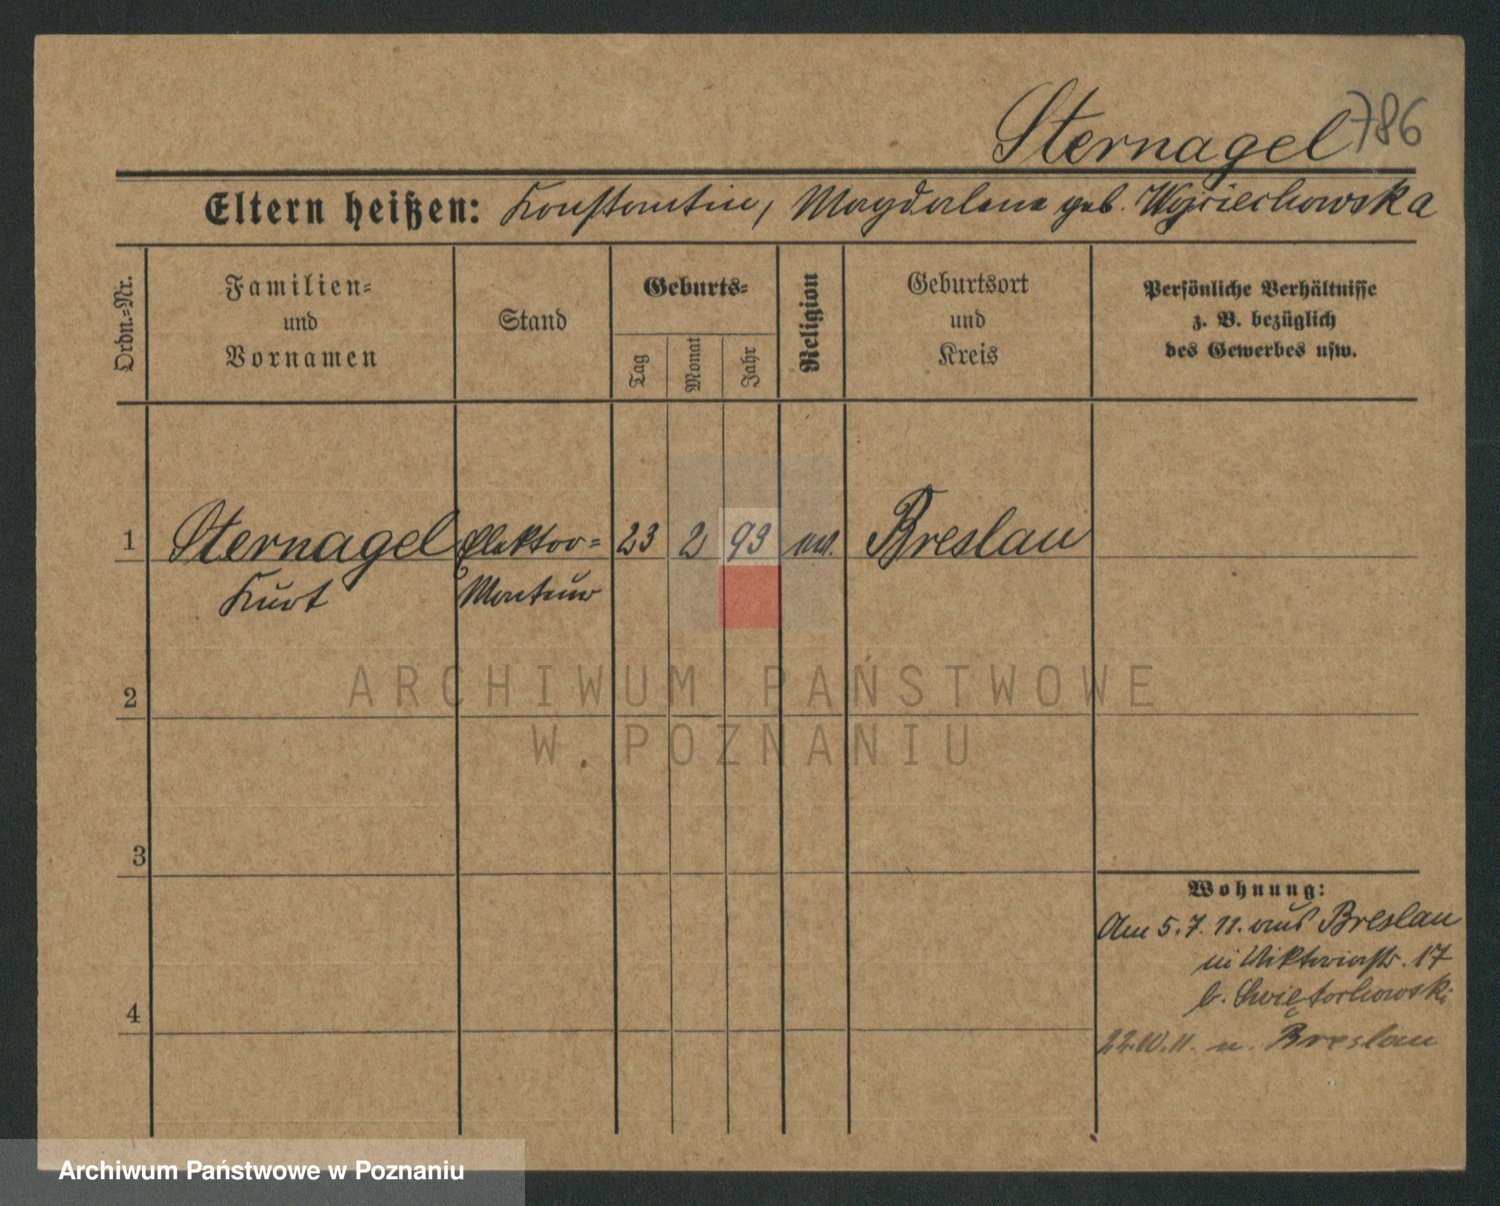 Sternagel 786
Eltern heißen: Konstantin, Magdalena geb. Wojciechowska
Ordn.-Nr.
Familien-
und
Vornamen
Stand
Geburts-
Tag
Monat
Jahr
Religion
Geburtsort
und
Kreis
Persönliche Verhältnisse
z. B. bezüglich
des Gewerbes usw.
1 Sternagel Elektro- 23 2 93 ev. Breslau
Kurt Monteur
2
ARCHIWUM PAŃSTWOWE
W POZNANIU
3
Wohnung:
Am 5.7.11. aus Breslau
in Viktoriastr. 17
b. Swiętochowski
4
22.10.11. n. Breslau
Archiwum Państwowe w Poznaniu